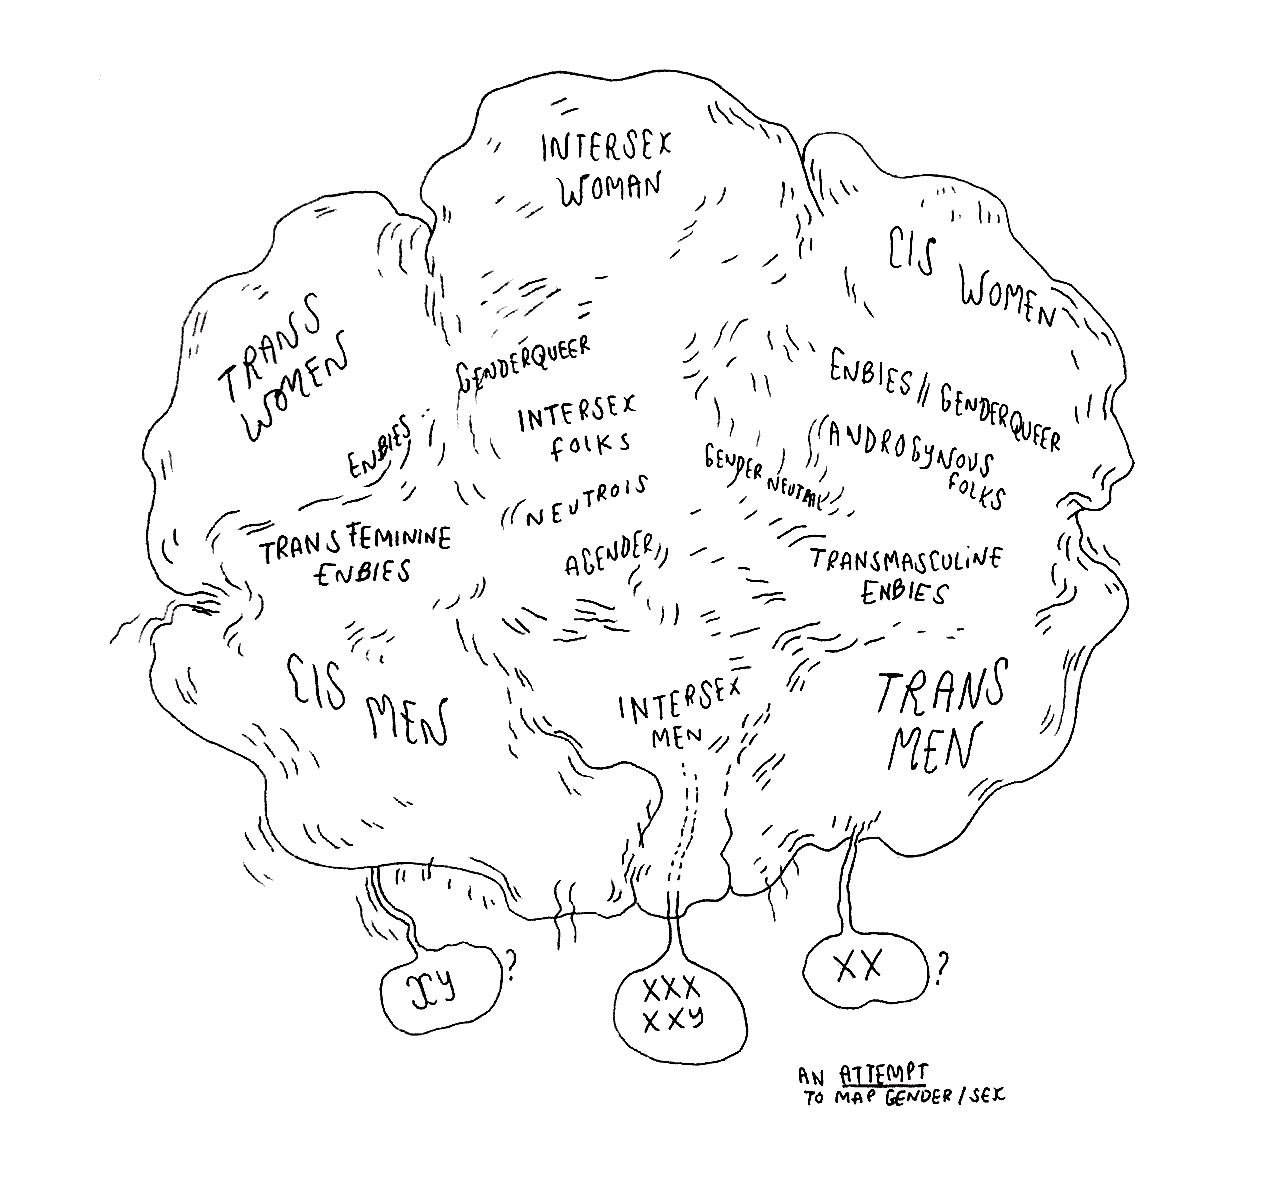 INTERSEX
WOMAN
CIS
WOMEN
TRANS
WOMEN
GENDERQUEER
ENBIES // GENDERQUEER
INTERSEX
FOLKS
ENBIES
((ANDROGYNOUS
FOLKS
GENDER NEUTRAL
((NEUTROIS
AGENDER))
TRANSFEMININE
ENBIES
TRANSMASCULINE
ENBIES
CIS
MEN
INTERSEX
MEN
TRANS
MEN
XY ?
XXX
XXY
XX ?
AN ATTEMPT
TO MAP GENDER/SEX